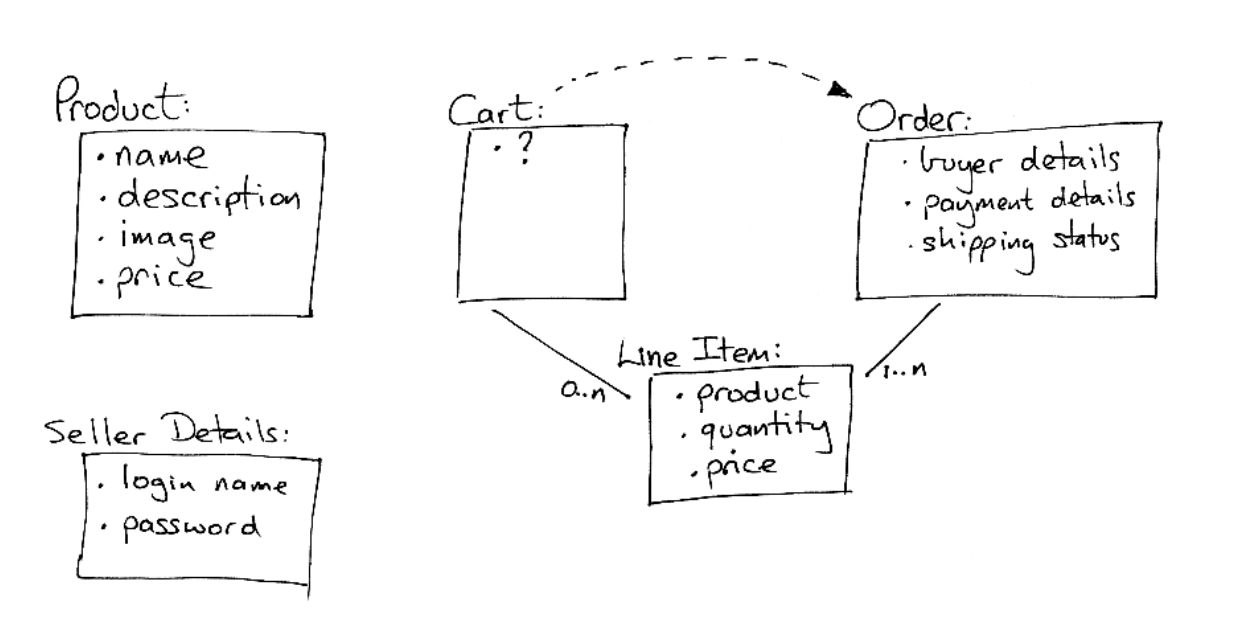 Product:
• name
• description
• image
• price
Cart:
• ?
Order:
• buyer details
• payment details
• shipping status
Line Item:
• product
• quantity
• price
0..n
1..n
Seller Details:
• login name
• password